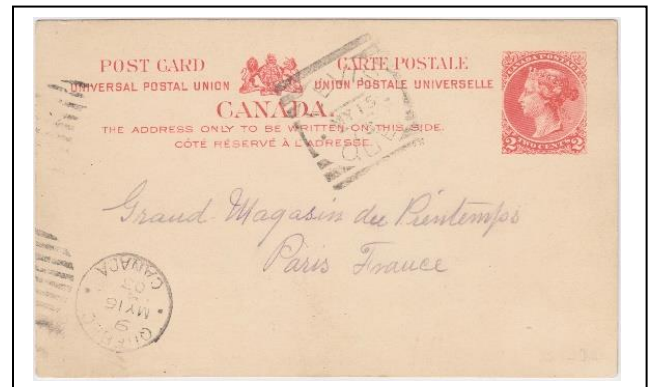 POST CARD CARTE POSTALE
UNIVERSAL POSTAL UNION UNION POSTALE UNIVERSELLE
CANADA
THE ADDRESS ONLY TO BE WRITTEN ON THIS SIDE.
CÔTÉ RÉSERVÉ À L'ADRESSE.
CANADA POSTAGE
2 TWO CENTS 2
MY 15
Grand Magasin du Printemps
Paris France
QUEBEC
9
MY 15
CANADA